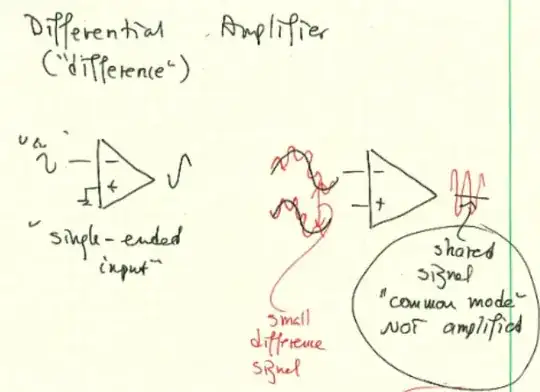 Differential Amplifier
("difference")
"single-ended
input"
small
difference
signal
shared
signal
"common mode"
NOT amplified